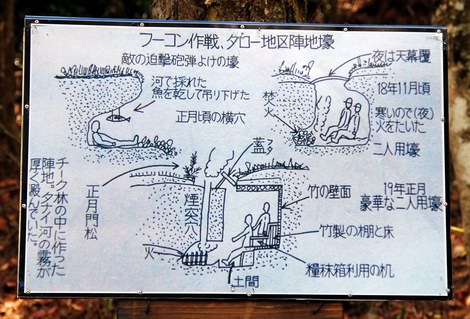 フーコン作戦、タロー地区陣地壕
敵の迫撃砲弾よけの壕
河で採れた
魚を乾して吊り下げた
正月頃の横穴
夜は天幕覆
18年11月頃
焚火
寒いので(夜)
火をたいた
二人用壕
蓋る
正月門松
煙突穴
火
土間
竹の壁面
19年正月
豪華な二人用壕
竹製の棚と床
糧秣箱利用の机
チーク林の中に作った
陣地。タナイ河の霧が
厚く澱んでいた。